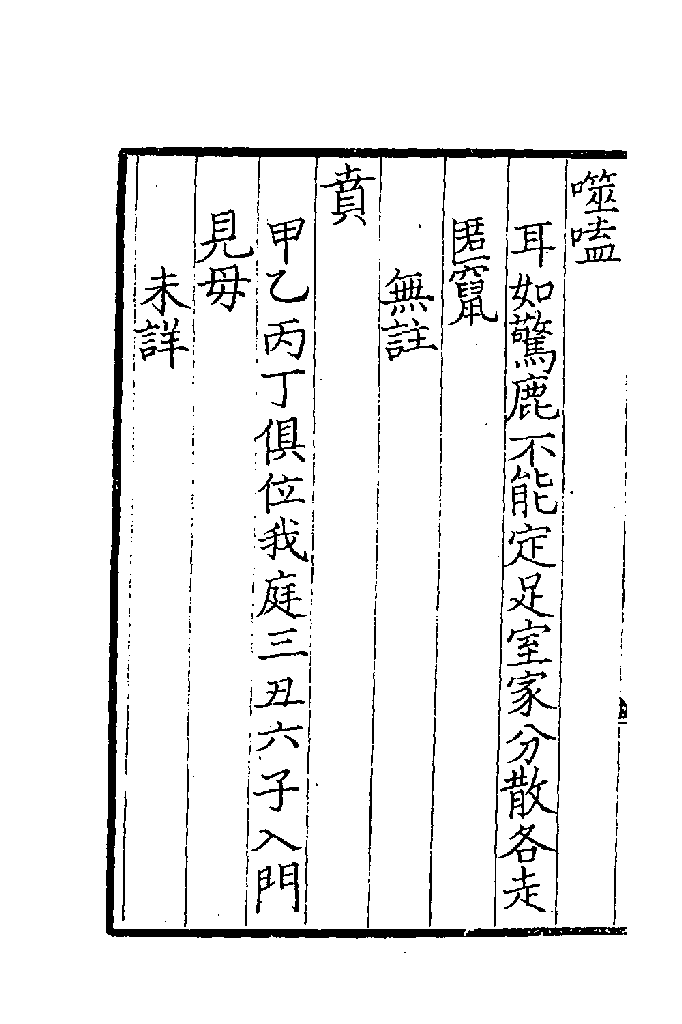 噬嗑
耳如驚鹿不能定足室家分散各走
匿竄
無註
賁
甲乙丙丁俱位我庭三丑六子入門
見毋
未詳